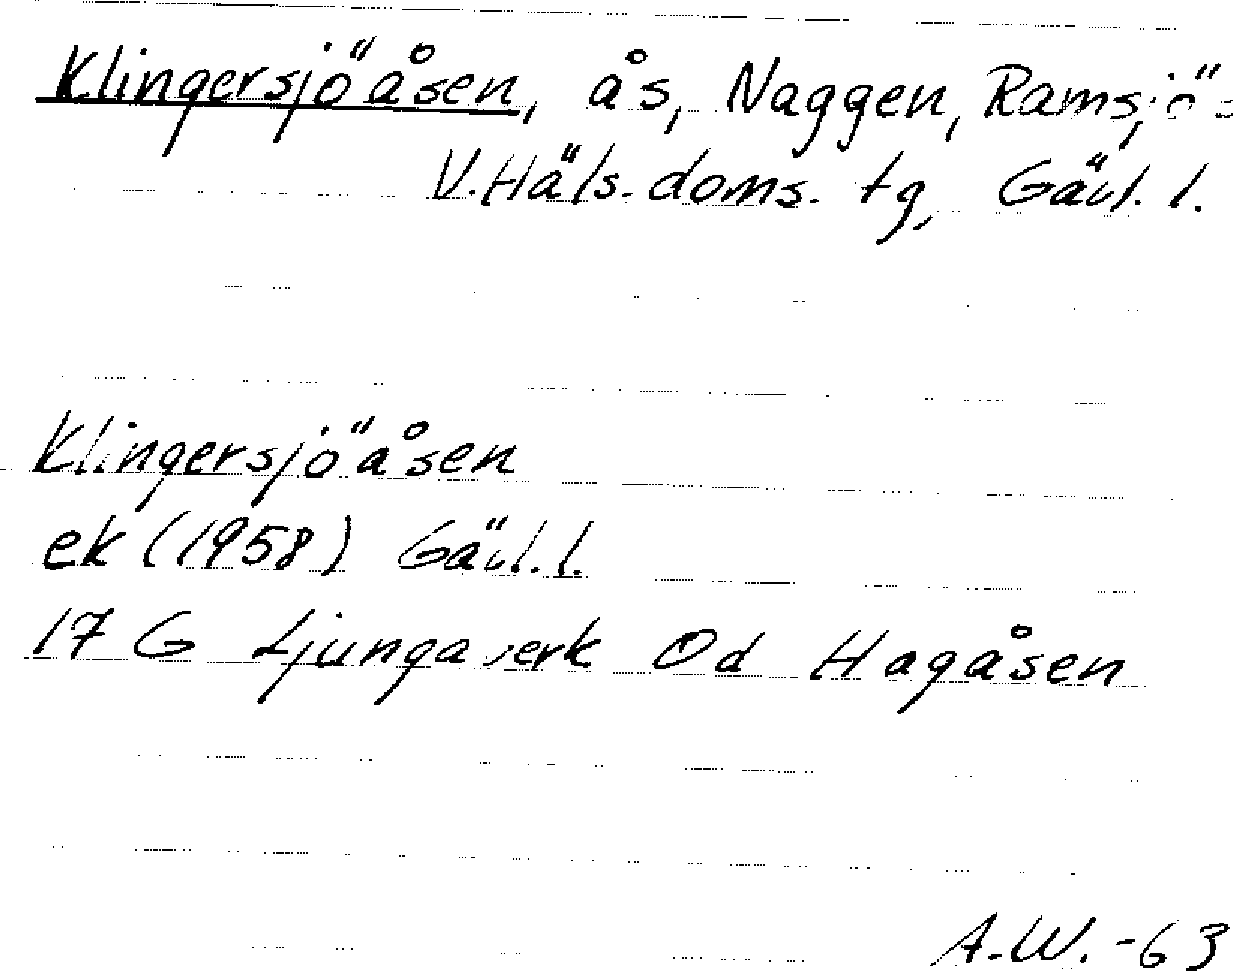 Klingersjöåsen, ås, Naggen, Ramsjö s
V. Häls. doms. tg, Gävl. l.
Klingersjöåsen
ek (1958) Gävl. l.
17 G Ljungaverk Od Hagåsen
A.W. -63